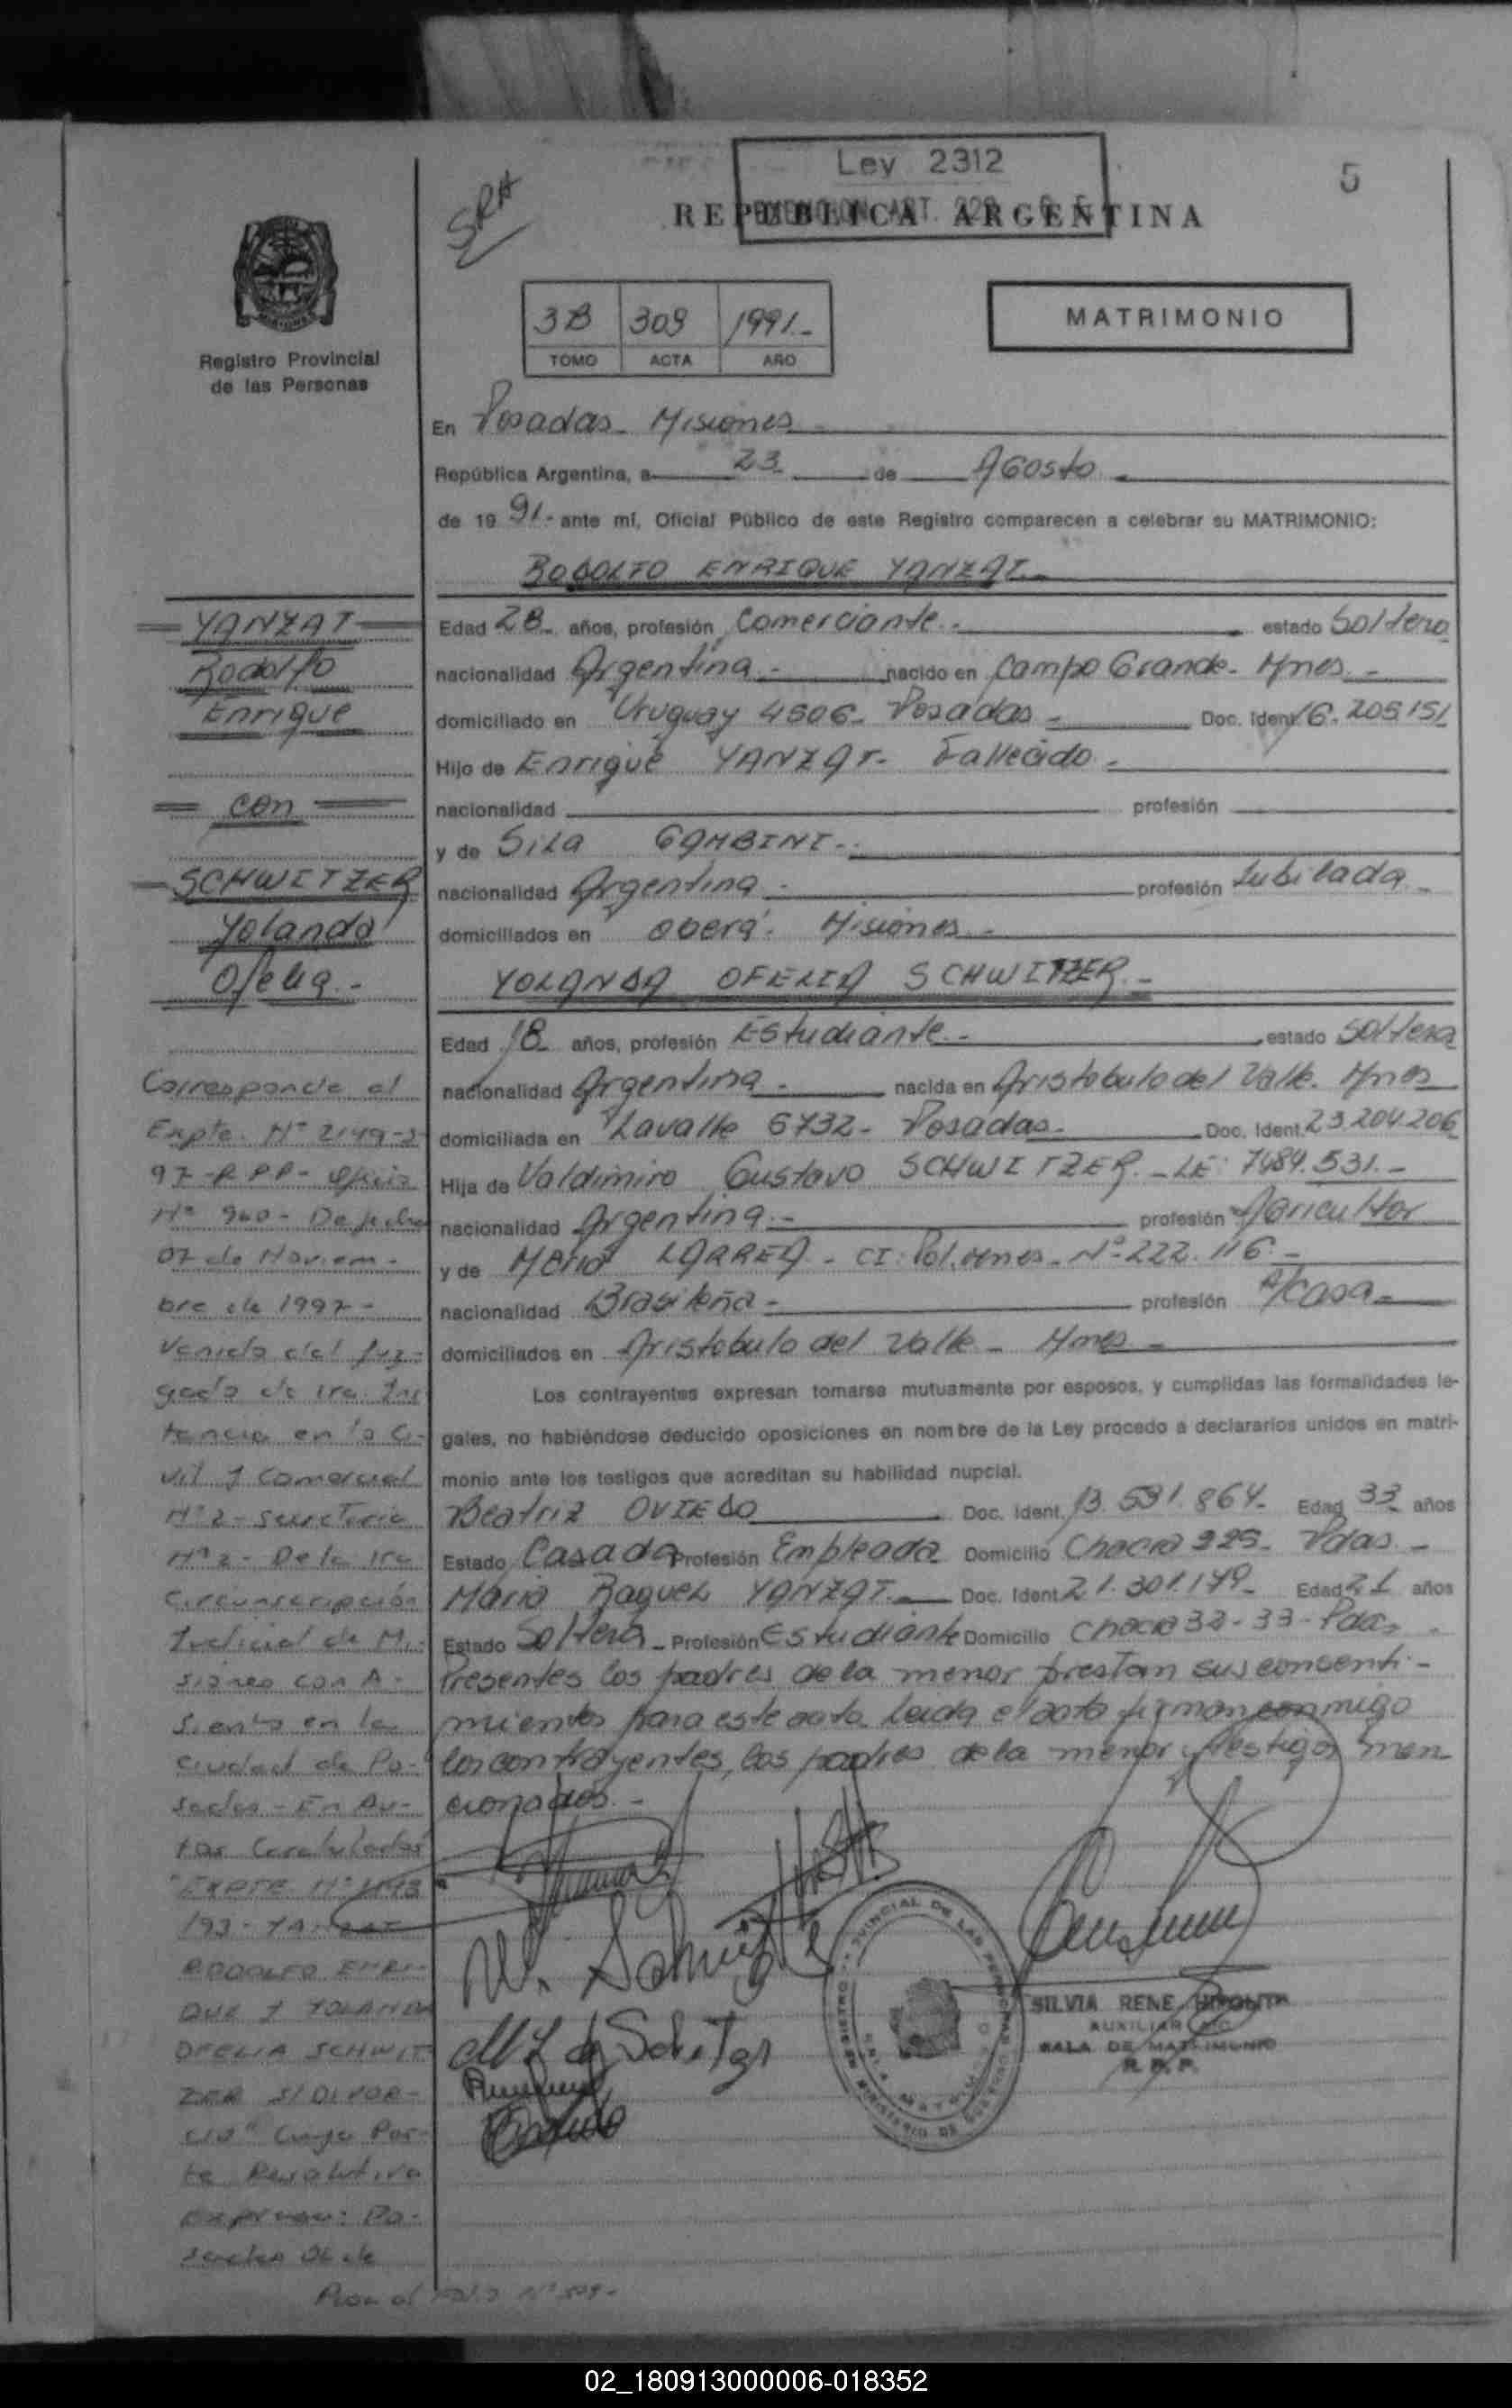 Ley 2312
5
SRH
REPUBLICA ARGENTINA
3B 309 1991.-
TOMO ACTA AÑO
MATRIMONIO
Registro Provincial
de las Personas
En Posadas - Misiones
República Argentina, a 23 de Agosto
de 19 91.- ante mí, Oficial Público de este Registro comparecen a celebrar su MATRIMONIO:
RODOLFO ENRIQUE YANZAT.-
Edad 28 años, profesión Comerciante.- estado Soltero
nacionalidad Argentina.- nacido en Campo Grande - Mnes.-
domiciliado en Uruguay 4506 - Posadas - Doc. Ident. 16.205.151
Hijo de Enrique YANZAT - Fallecido.
nacionalidad profesión
y de Sila GAMBINI.-
nacionalidad Argentina - profesión Jubilada
domiciliados en Oberá - Misiones.-
YOLANDA OFELIA SCHWITZER.-
Edad 18 años, profesión Estudiante.- estado Soltera
nacionalidad Argentina.- nacida en Aristobulo del Valle. Mnes
domiciliada en Lavalle 6732 - Posadas - Doc. Ident. 23.204.206
Hija de Valdimiro Gustavo SCHWITZER.- LE: 7484.531.-
nacionalidad Argentina.- profesión Agricultor
y de Maria LARREA - CI: Pol. Mnes - Nº 222.116.-
nacionalidad Brasileña - profesión A/casa -
domiciliados en Aristobulo del Valle - Mnes -
Los contrayentes expresan tomarse mutuamente por esposos, y cumplidas las formalidades le-
gales, no habiéndose deducido oposiciones en nombre de la Ley procedo a declararlos unidos en matri-
monio ante los testigos que acreditan su habilidad nupcial.
Beatriz OVIEDO Doc. Ident. 13.591.864 - Edad 33 años
Estado Casada Profesión Empleada Domicilio Chacra Pdas.-
Maria Raquel YANZAT.- Doc. Ident. 21.301.179 - Edad 21 años
Estado Soltera - Profesión Estudiante Domicilio Chacra 32-33- Pdas.
Presentes los padres de la menor prestan sus consenti-
mientos para este acto. Leida el acta firman conmigo
los contrayentes, los padres de la menor y testigos men
cionados.-
SILVIA RENE HIPOLITA
AUXILIAR
SALA DE MATRIMONIO
R. P. P.
YANZAT
Rodolfo
Enrique
con
SCHWITZER
Yolanda
Ofelia.-
Corresponde al
Expte. Nº 2149-
97-R PP- Oficio
Nº 960- De fecha
07 de Noviem-
bre de 1997-
Venido del Juz-
gado de 1ra. Ins
tancia en lo Ci-
vil y Comercial
Nº 2- Secretaria
Nº 2- De la 1ra
Circunscripción
Judicial de Mi-
siones con A-
siento en la
ciudad de Po-
sadas - En Au-
tos Caratulados
"EXPTE Nº
/93- YANZAT
RODOLFO ENRI-
QUE Y YOLANDA
OFELIA SCHWIT
ZER S/DIVOR-
CIO" Cuya Par-
te Resolutiva
Expresa: Po-
sadas 06 de
02_180913000006-018352